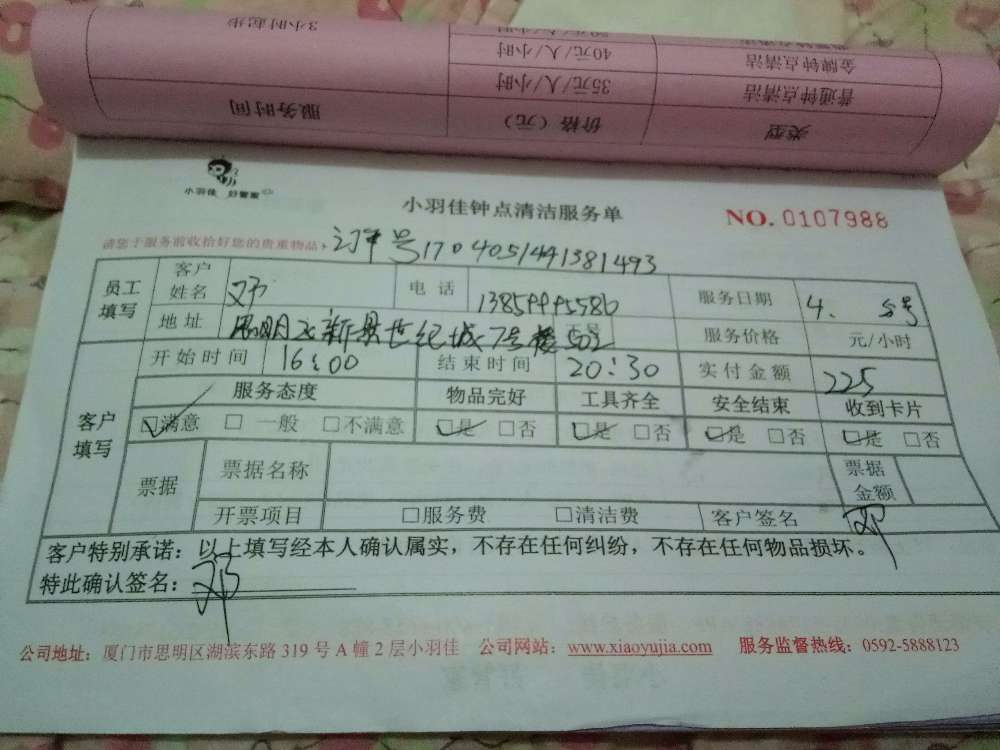 3小时起步
40元/人/小时
金牌钟点清洁
35元/人/小时
普通钟点清洁
服务时间
价格（元）
类型
小羽佳 好管家
小羽佳钟点清洁服务单
NO. 0107988
请您于服务前收拾好您的贵重物品，订单号1704051441381493
员工填写 客户姓名 邓 电话 13859995580 服务日期 4. 5号
地址 思明区新景世纪城7号楼 服务价格 元/小时
客户填写 开始时间 16:00 结束时间 20:30 实付金额 225
服务态度 物品完好 工具齐全 安全结束 收到卡片
☑满意 □一般 □不满意 ☑是 □否 ☑是 □否 ☑是 □否 ☑是 □否
票据 票据名称 票据金额
开票项目 □服务费 □清洁费 客户签名 邓
客户特别承诺：以上填写经本人确认属实，不存在任何纠纷，不存在任何物品损坏。
特此确认签名：邓
公司地址：厦门市思明区湖滨东路319号A幢2层小羽佳 公司网站：www.xiaoyujia.com 服务监督热线：0592-5888123